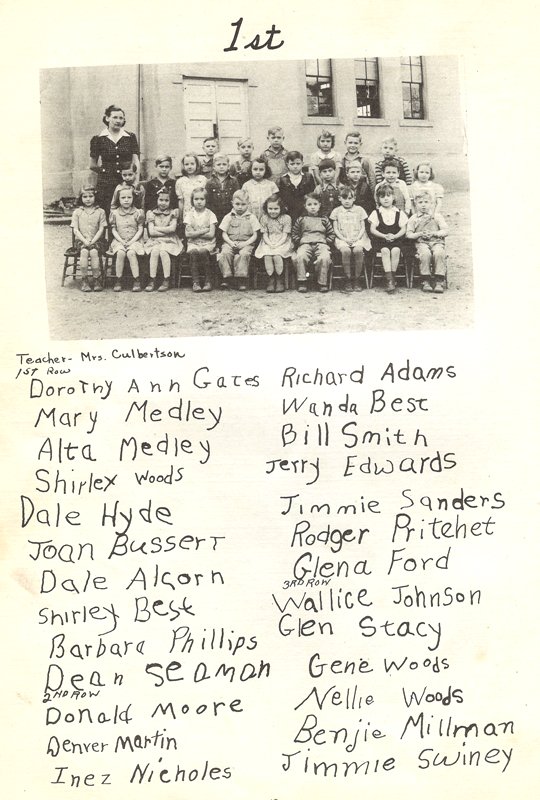 1st
Teacher- Mrs. Culbertson
1st Row
Dorothy Ann Gates
Mary Medley
Alta Medley
Shirley Woods
Dale Hyde
Joan Bussert
Dale Alcorn
Shirley Best
Barbara Phillips
Dean Seaman
2nd Row
Donald Moore
Denver Martin
Inez Nicholes
Richard Adams
Wanda Best
Bill Smith
Jerry Edwards
Jimmie Sanders
Rodger Pritchet
Glena Ford
3rd Row
Wallice Johnson
Glen Stacy
Gene Woods
Nellie Woods
Benjie Millman
Jimmie Swiney